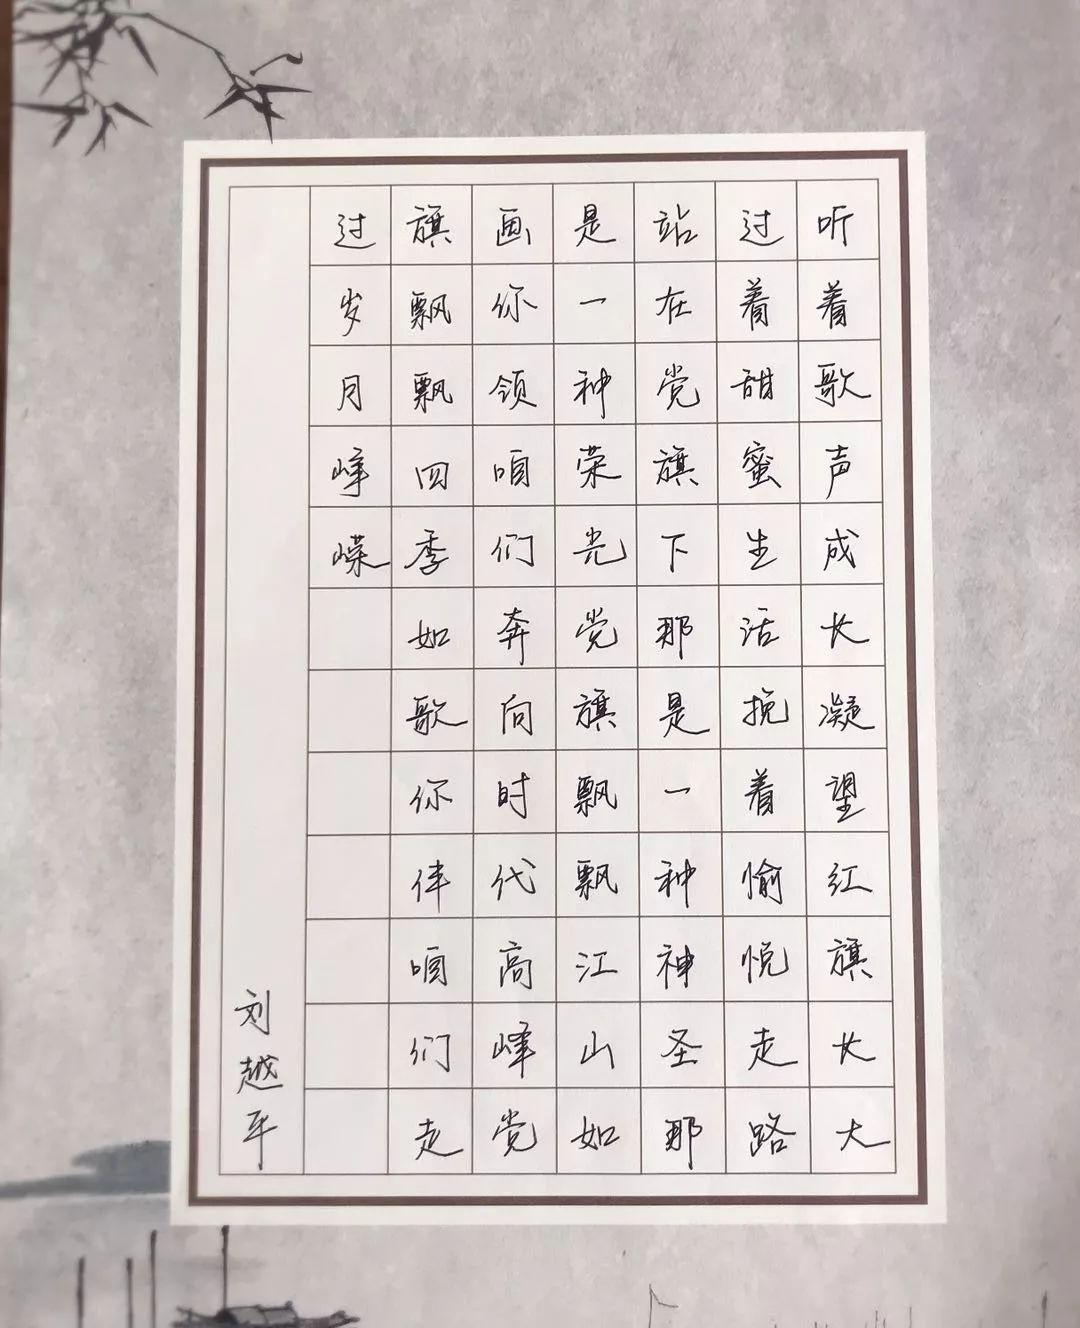 听着歌声成长凝望红旗长大
过着甜蜜生活挽着愉悦走路
站在党旗下那是一种神圣那
是一种荣光党旗飘飘江山如
画你领咱们奔向时代高峰党
旗飘飘四季如歌你伴咱们走
过岁月峥嵘
刘越平